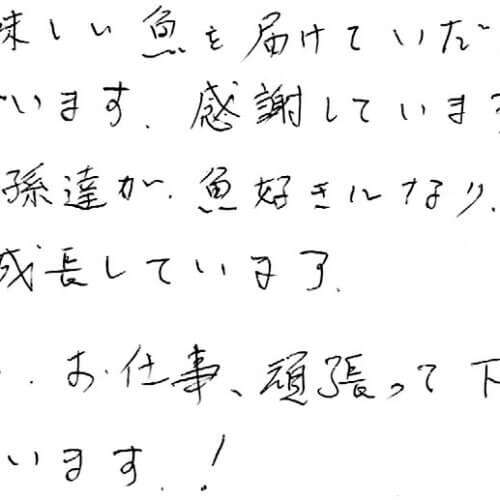 味しい魚を届けていただ
います。感謝しています
孫達が、魚好きになり、
成長しています。
お仕事、頑張って下
います。!